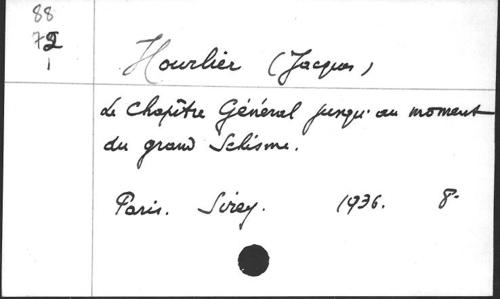 88
72
1
Hourlier (Jacques)
Le Chapître Général jusqu'au moment
du grand Schisme.
Paris. Sirey. 1936. 8-